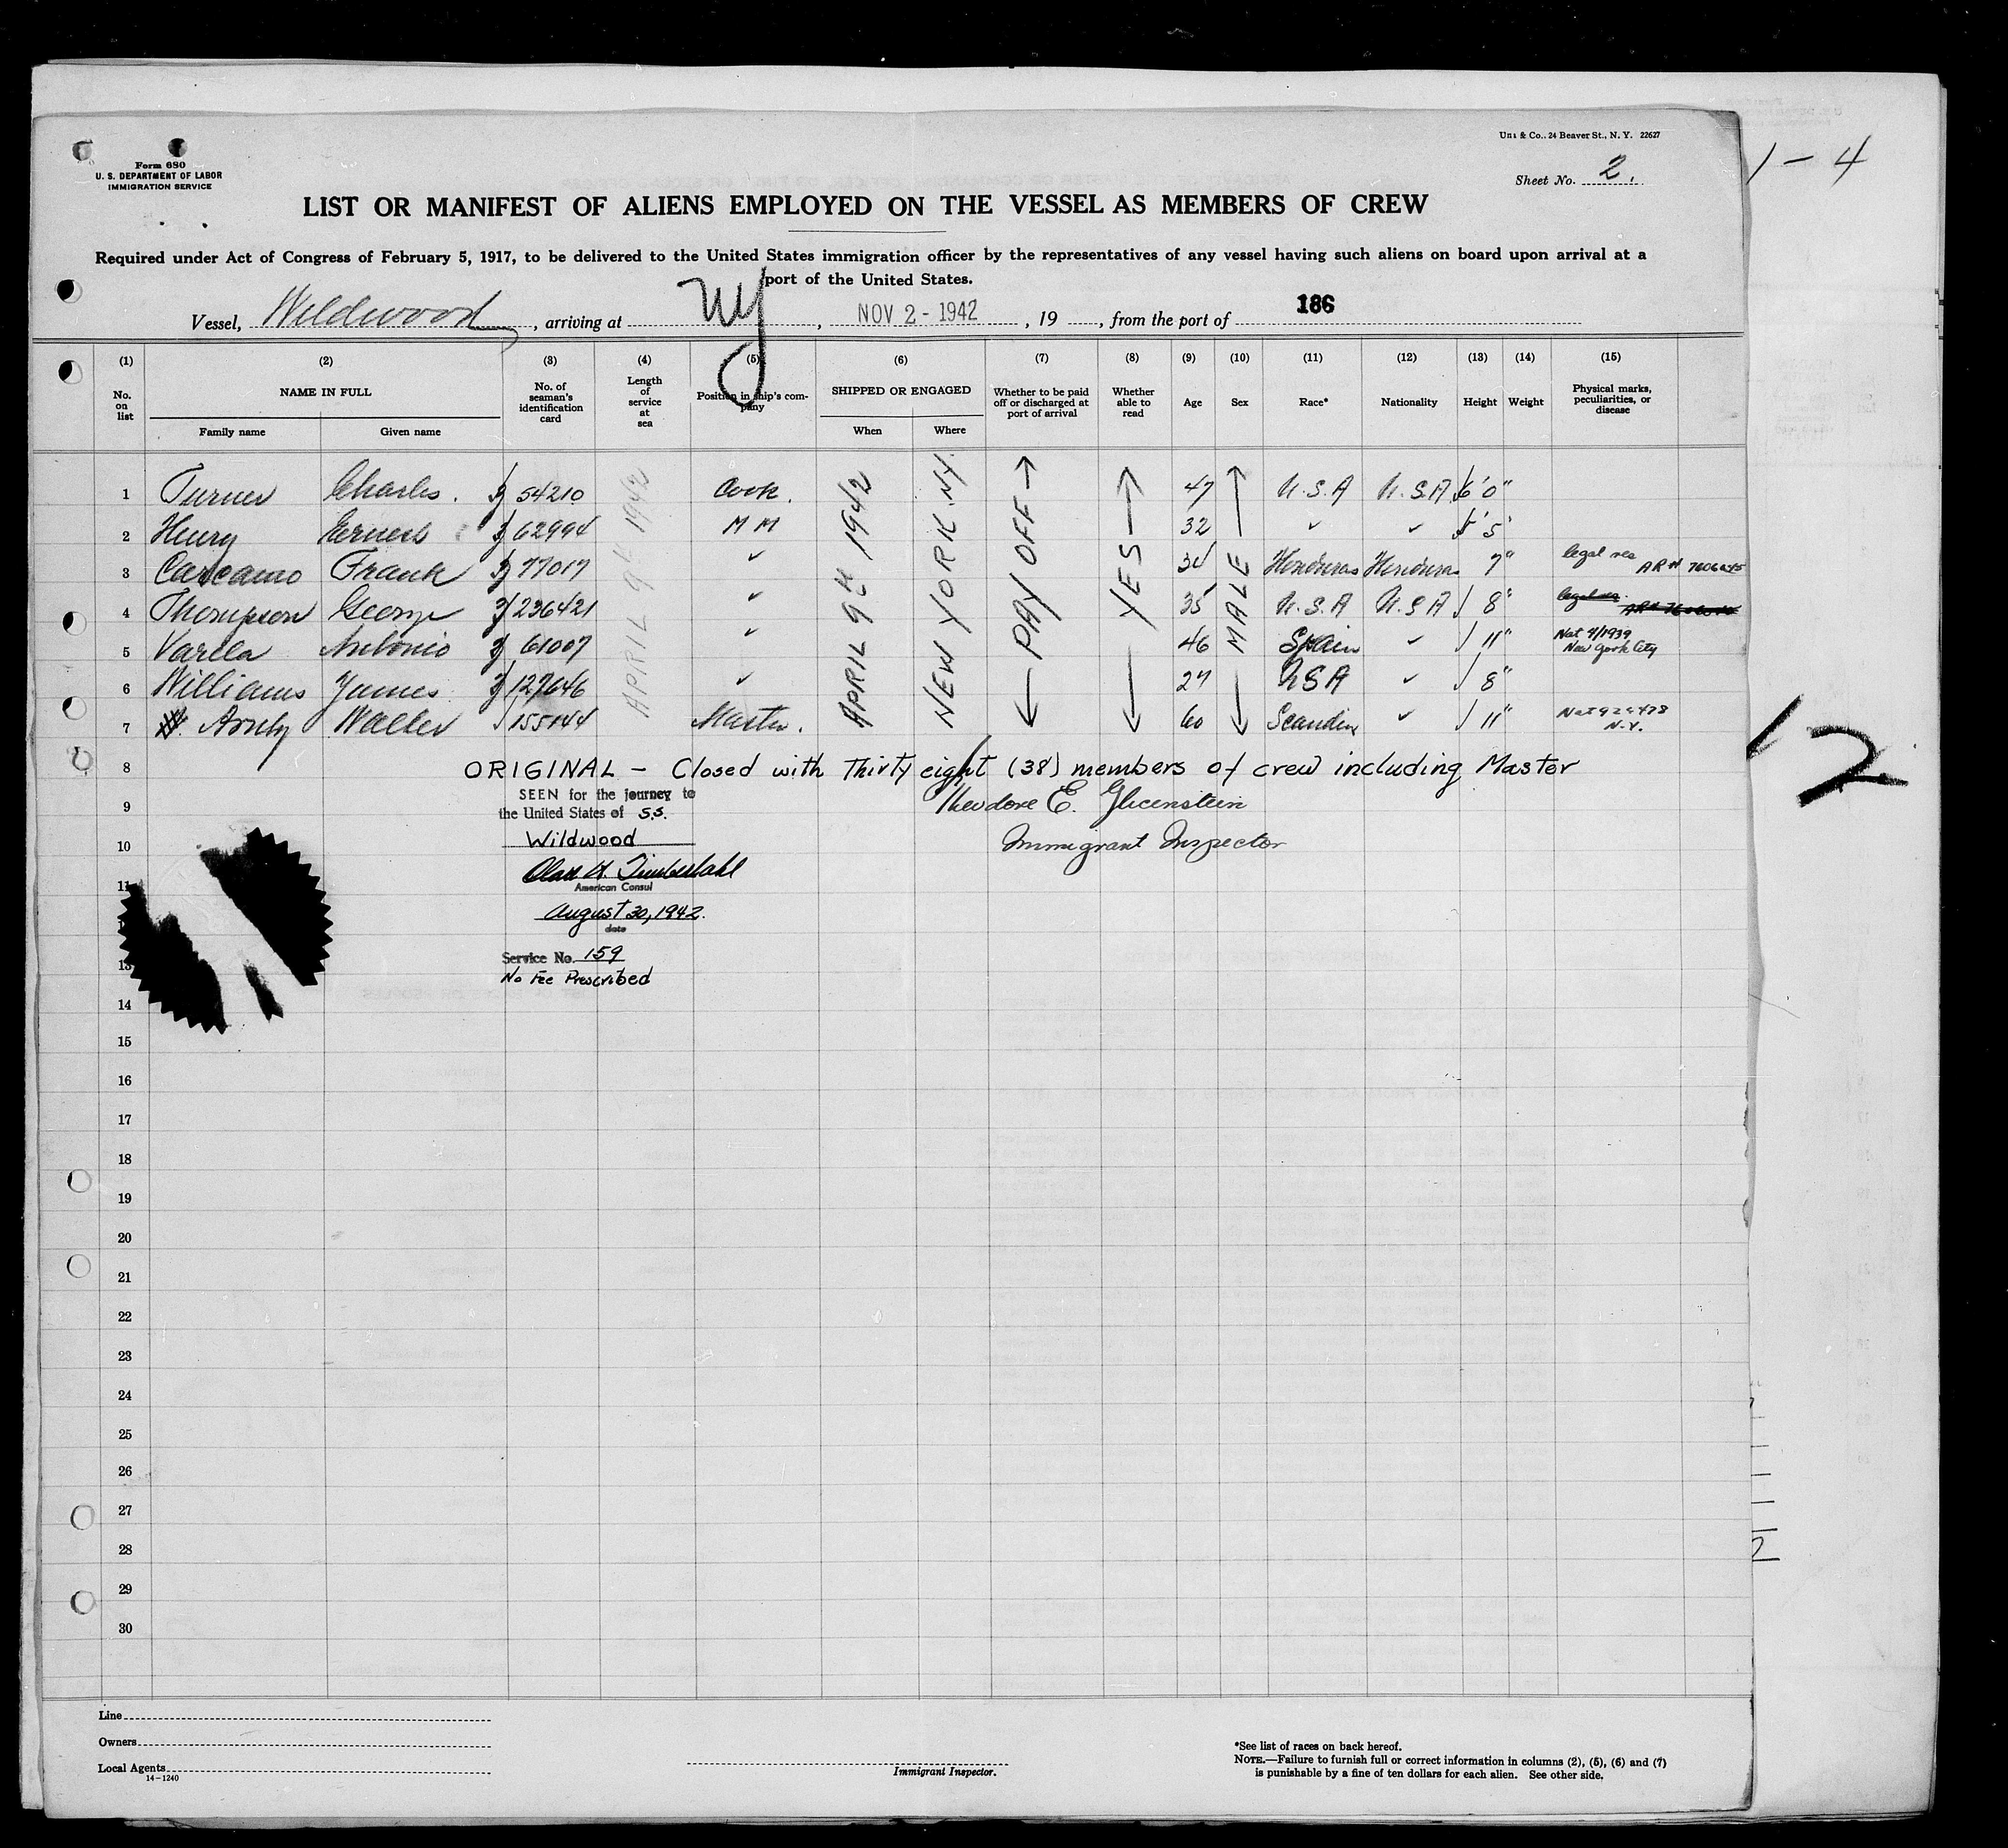 Form 680
U. S. DEPARTMENT OF LABOR
IMMIGRATION SERVICE
& Co., 24 Beaver St., N. Y. 22627
Sheet No. 2.
1 - 4
LIST OR MANIFEST OF ALIENS EMPLOYED ON THE VESSEL AS MEMBERS OF CREW
Required under Act of Congress of February 5, 1917, to be delivered to the United States immigration officer by the representatives of any vessel having such aliens on board upon arrival at a
port of the United States.
Vessel, Wildwood, arriving at NY, NOV 2 - 1942, 19, from the port of 186
(1) (2) (3) (4) (5) (6) (7) (8) (9) (10) (11) (12) (13) (14) (15)
No. on list
NAME IN FULL
Family name Given name
No. of seaman's identification card
Length of service at sea
Position in ship's company
SHIPPED OR ENGAGED
When Where
Whether to be paid off or discharged at port of arrival
Whether able to read
Age
Sex
Race*
Nationality
Height
Weight
Physical marks, peculiarities, or disease
APRIL 9th 1942
APRIL 9th 1942
NEW YORK. NY.
← PAY OFF →
← YES →
← MALE →
1 Turner Charles. 54210 Cook. 47 U.S.A U.S.A 6'0"
2 Henry Ernest 62994 M M 32 ✓ ✓ 5'5"
3 Carcamo Frank 77017 ✓ 34 Honduras Honduras 7" legal res AR#
4 Thompson George 236421 ✓ 35 U.S.A U.S.A 8" legal res.
5 Varela Antonio 61007 ✓ 46 Spain ✓ 11" Nat 4/1939
New York City
6 Williams James 127646 ✓ 27 USA ✓ 8"
7 Walter Master. 60 Scandin ✓ 11" Nat
N.Y.
8 ORIGINAL - Closed with Thirty eight (38) members of crew including Master
9 SEEN for the journey to
the United States of S.S.
Wildwood
Theodore E. Glicenstein
10 Immigrant Inspector
11 American Consul
August 30, 1942.
date
13 Service No. 159
No Fee Prescribed
12
14
15
16
17
18
19
20
21
22
23
24
25
26
27
28
29
30
Line
Owners
Local Agents
14-1240
Immigrant Inspector.
*See list of races on back hereof.
NOTE.—Failure to furnish full or correct information in columns (2), (5), (6) and (7)
is punishable by a fine of ten dollars for each alien. See other side.